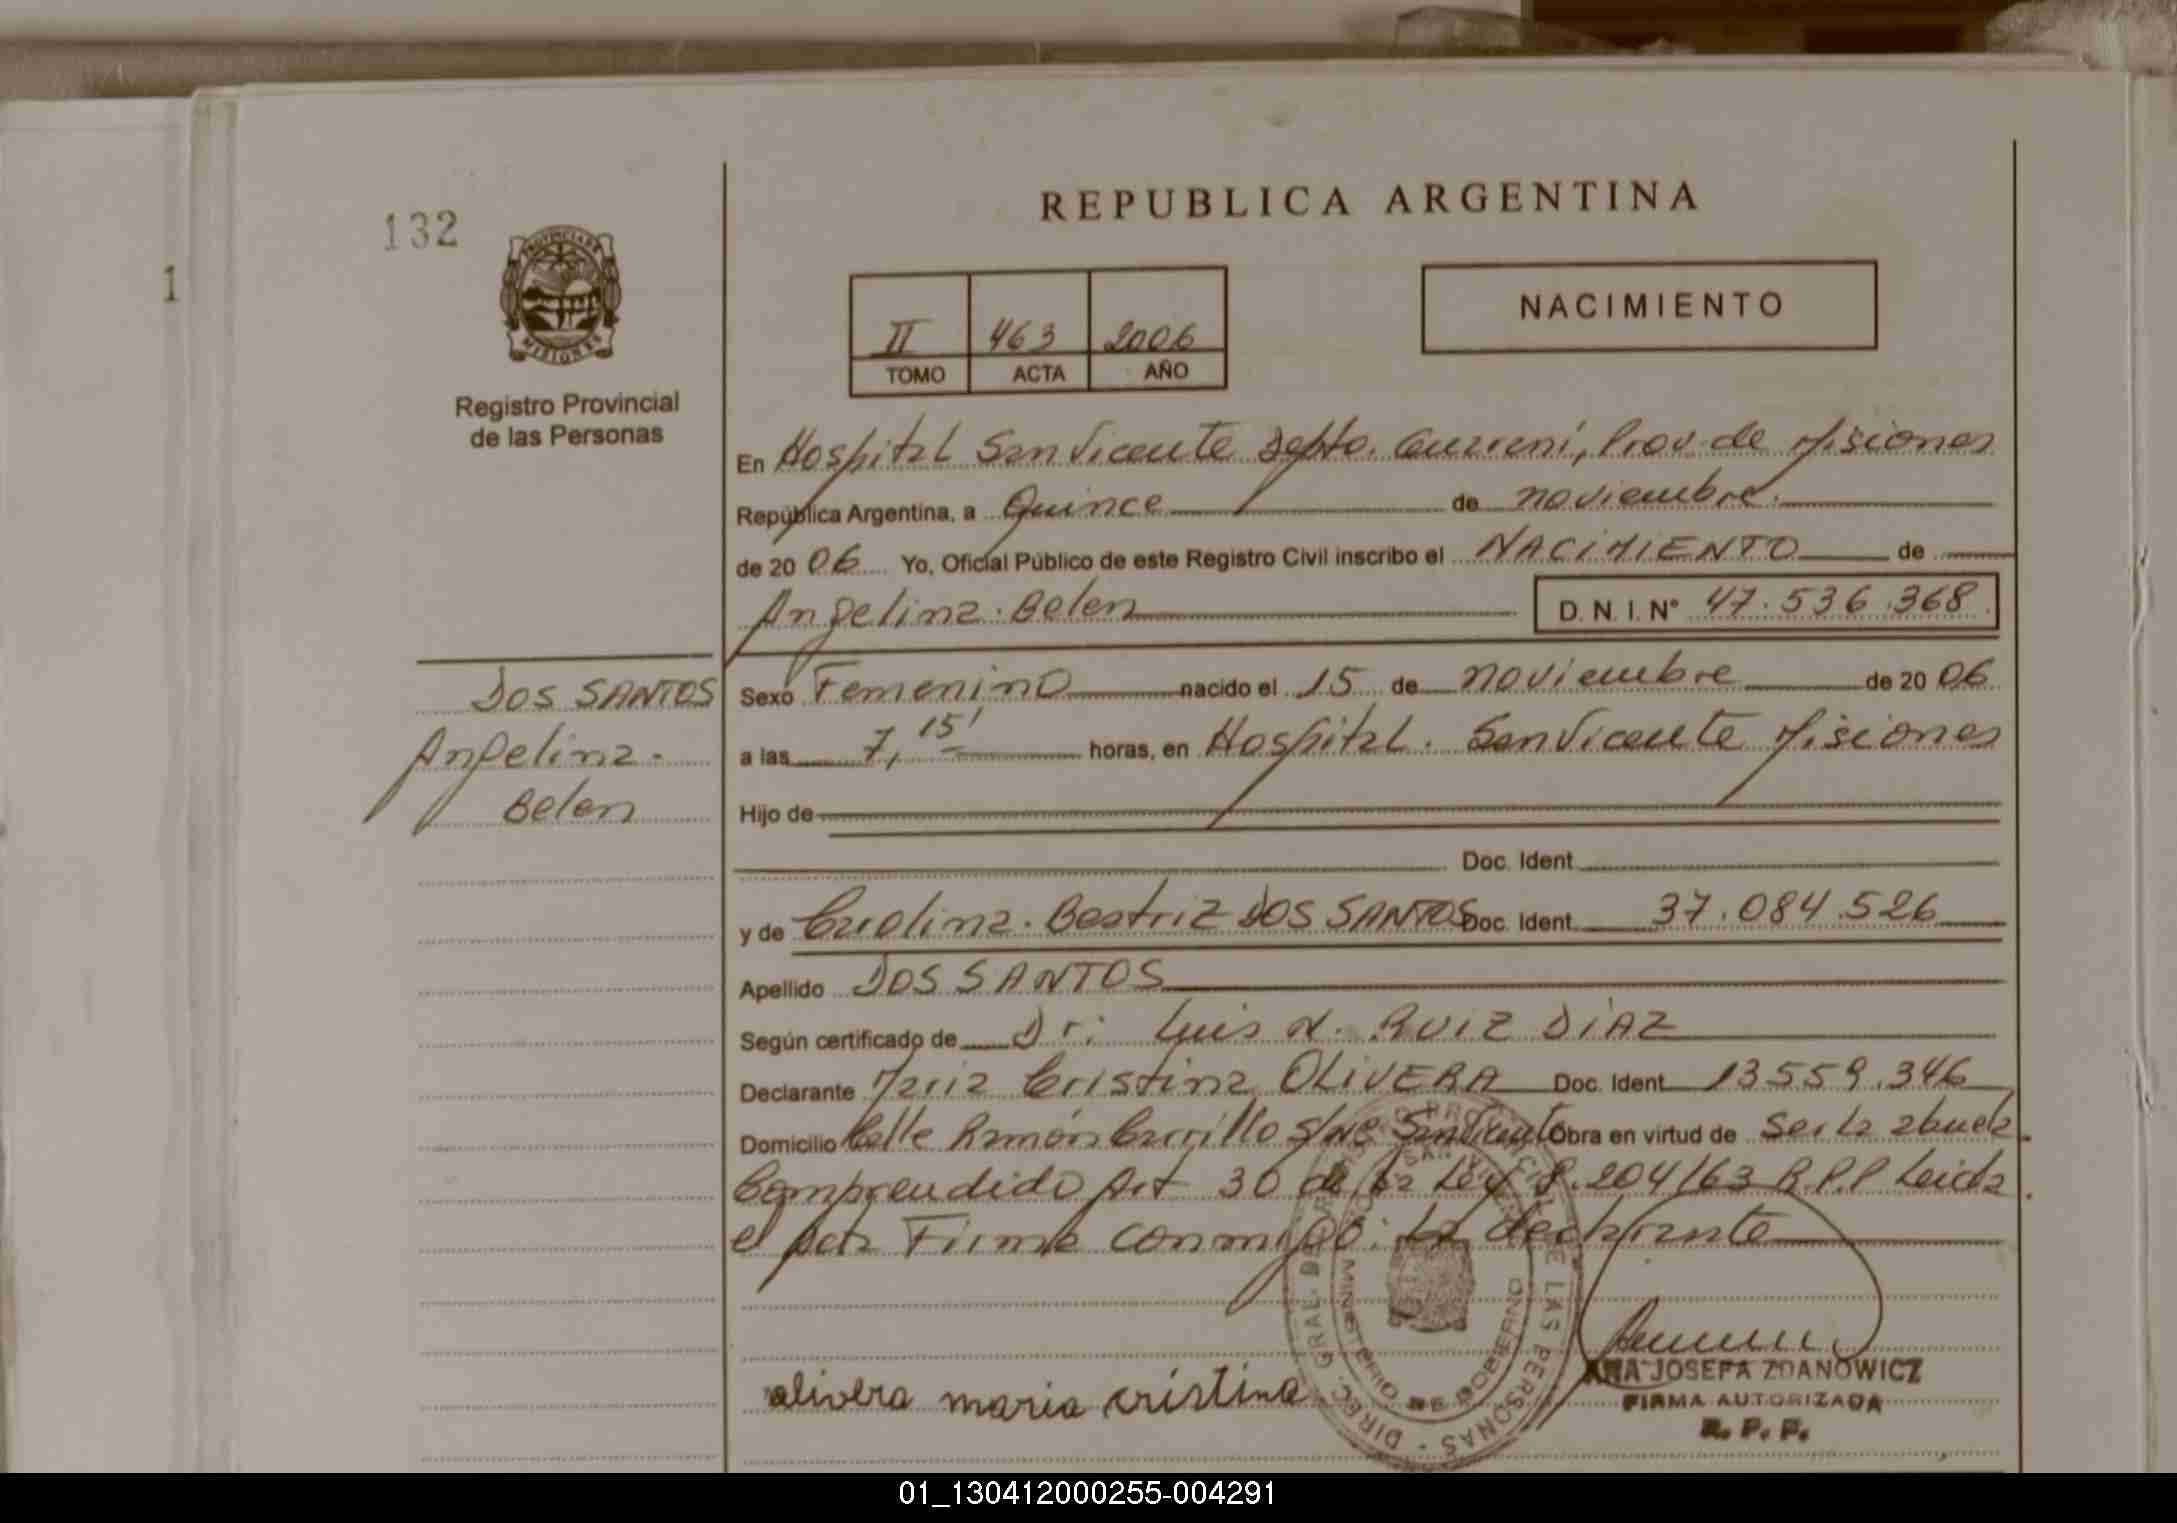 REPUBLICA ARGENTINA
132
1
PROVINCIA DE
MISIONES
Registro Provincial
de las Personas
NACIMIENTO
II 463 2006
TOMO ACTA AÑO
En Hospital San Vicente Depto. Guarani, Prov. de Misiones
República Argentina, a Quince de noviembre.
de 20 06 Yo, Oficial Público de este Registro Civil inscribo el NACIMIENTO de
Angelina. Belen D. N. I. N° 47.536.368
DOS SANTOS
Angelina.
Belen
Sexo Femenino nacido el 15 de noviembre de 20 06
a las 7, 15' horas, en Hospital. San Vicente Misiones
Hijo de
Doc. Ident
y de Carolina. Beatriz DOS SANTOS Doc. Ident. 37.084.526
Apellido DOS SANTOS
Según certificado de Dr: Luis N. RUIZ DIAZ
Declarante Maria Cristina OLIVERA Doc. Ident 13559.346
Domicilio Calle Ramón Carrillo San Vicente Obra en virtud de ser la abuela.
Comprendido Art 30 de la Ley 8.204/63 R.P.P Leida
el acta Firma conmigo: la declarante
olivera maria cristina
DIREC. GRAL. DE LAS PERSONAS
MINISTERIO DE GOBIERNO
ANA JOSEFA ZDANOWICZ
FIRMA AUTORIZADA
R. P. P.
01_130412000255-004291